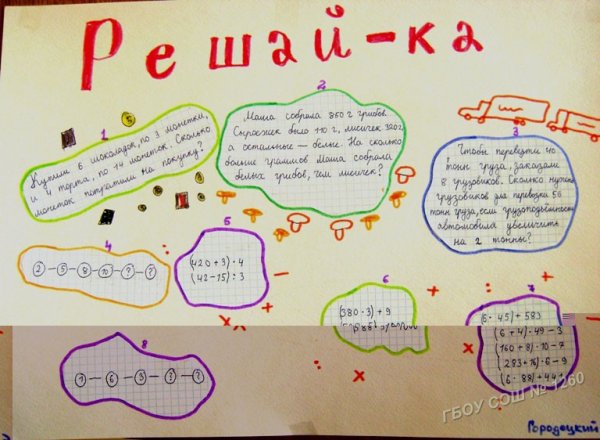 Решай-ка
1
Купили 6 шоколадок, по 3 монетки,
и 4 торта, по 14 монеток. Сколько
монеток потратили на покупку?
5
2
Маша собрала 850 г грибов.
Сыроежек было 110 г, лисичек 320 г
а остальные — белые. На сколько
больше граммов Маша собрала
белых грибов, чем лисичек?
3
Чтобы перевезти 40
тонн груза, заказали
8 грузовиков. Сколько нужно
грузовиков для перевозки 56
тонн груза, если грузоподъёмность
автомобиля увеличить
на 2 тонны?
4
2 — 5 — 8 — 10 — ? — ?
5
(420 + 3) · 4
(42 - 15) : 3
6
(380 · 3) + 9
7
(6 · 45) + 583
(6 + 4) · 49 - 3
(160 + 8) · 10 - 7
(283 + 16) · 6 - 9
(6 · 88) + 44
8
1 — 6 — 3 — ? — ?
ГБОУ СОШ № 1260
Городецкий